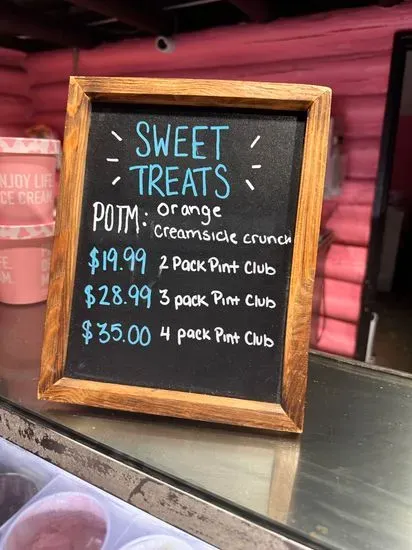 SWEET
TREATS
POTM: Orange
Creamsicle crunch
$19.99 2 Pack Pint Club
$28.99 3 pack Pint Club
$35.00 4 pack Pint Club
ENJOY LIFE
ICE CREAM